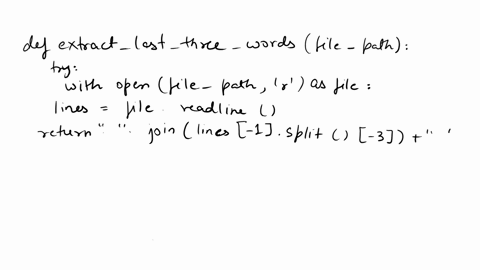 def extract_last_three_words (file_path):
try:
with open (file_path, 'r') as file:
lines = file. readline ()
return " ". join (lines [-1]. split () [-3]) + " "